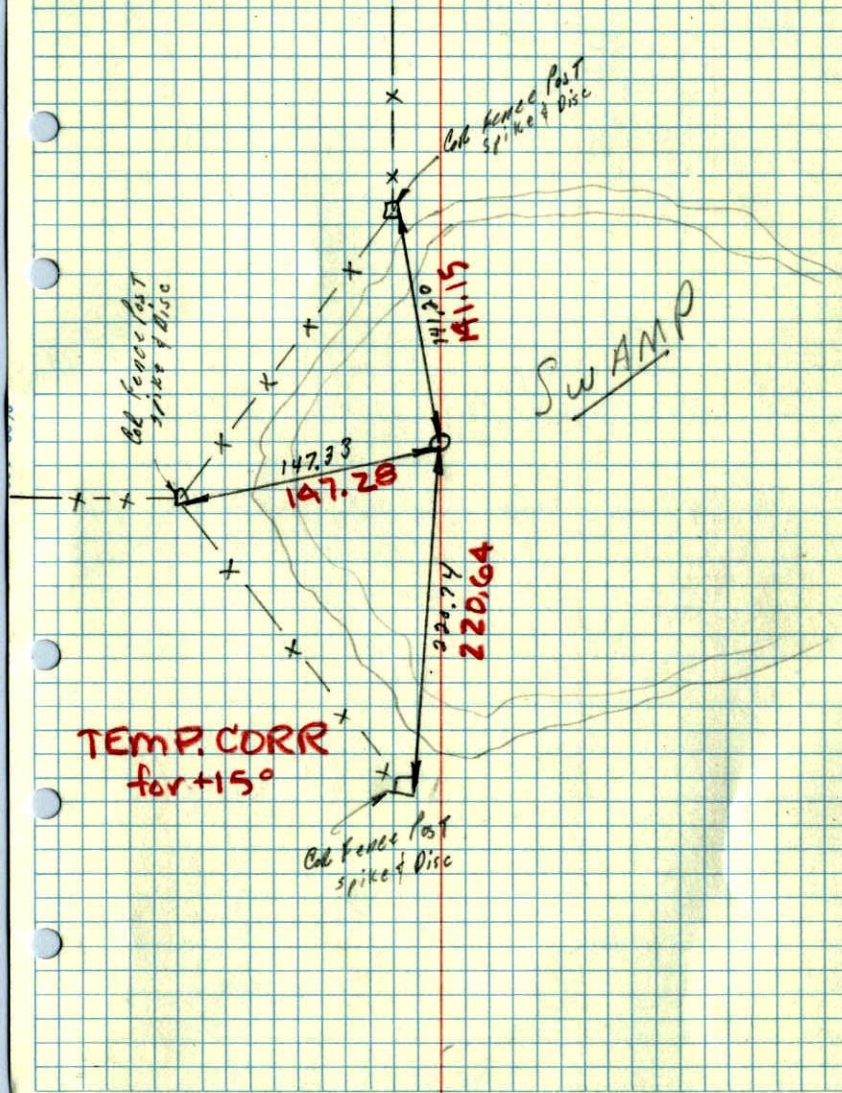 Cor Fence Post
Spike & Disc
Cor Fence Post
Spike & Disc
141.20
141.15
SWAMP
147.33
147.28
220.74
220.64
TEMP. CORR
for +15°
Cor Fence Post
Spike & Disc